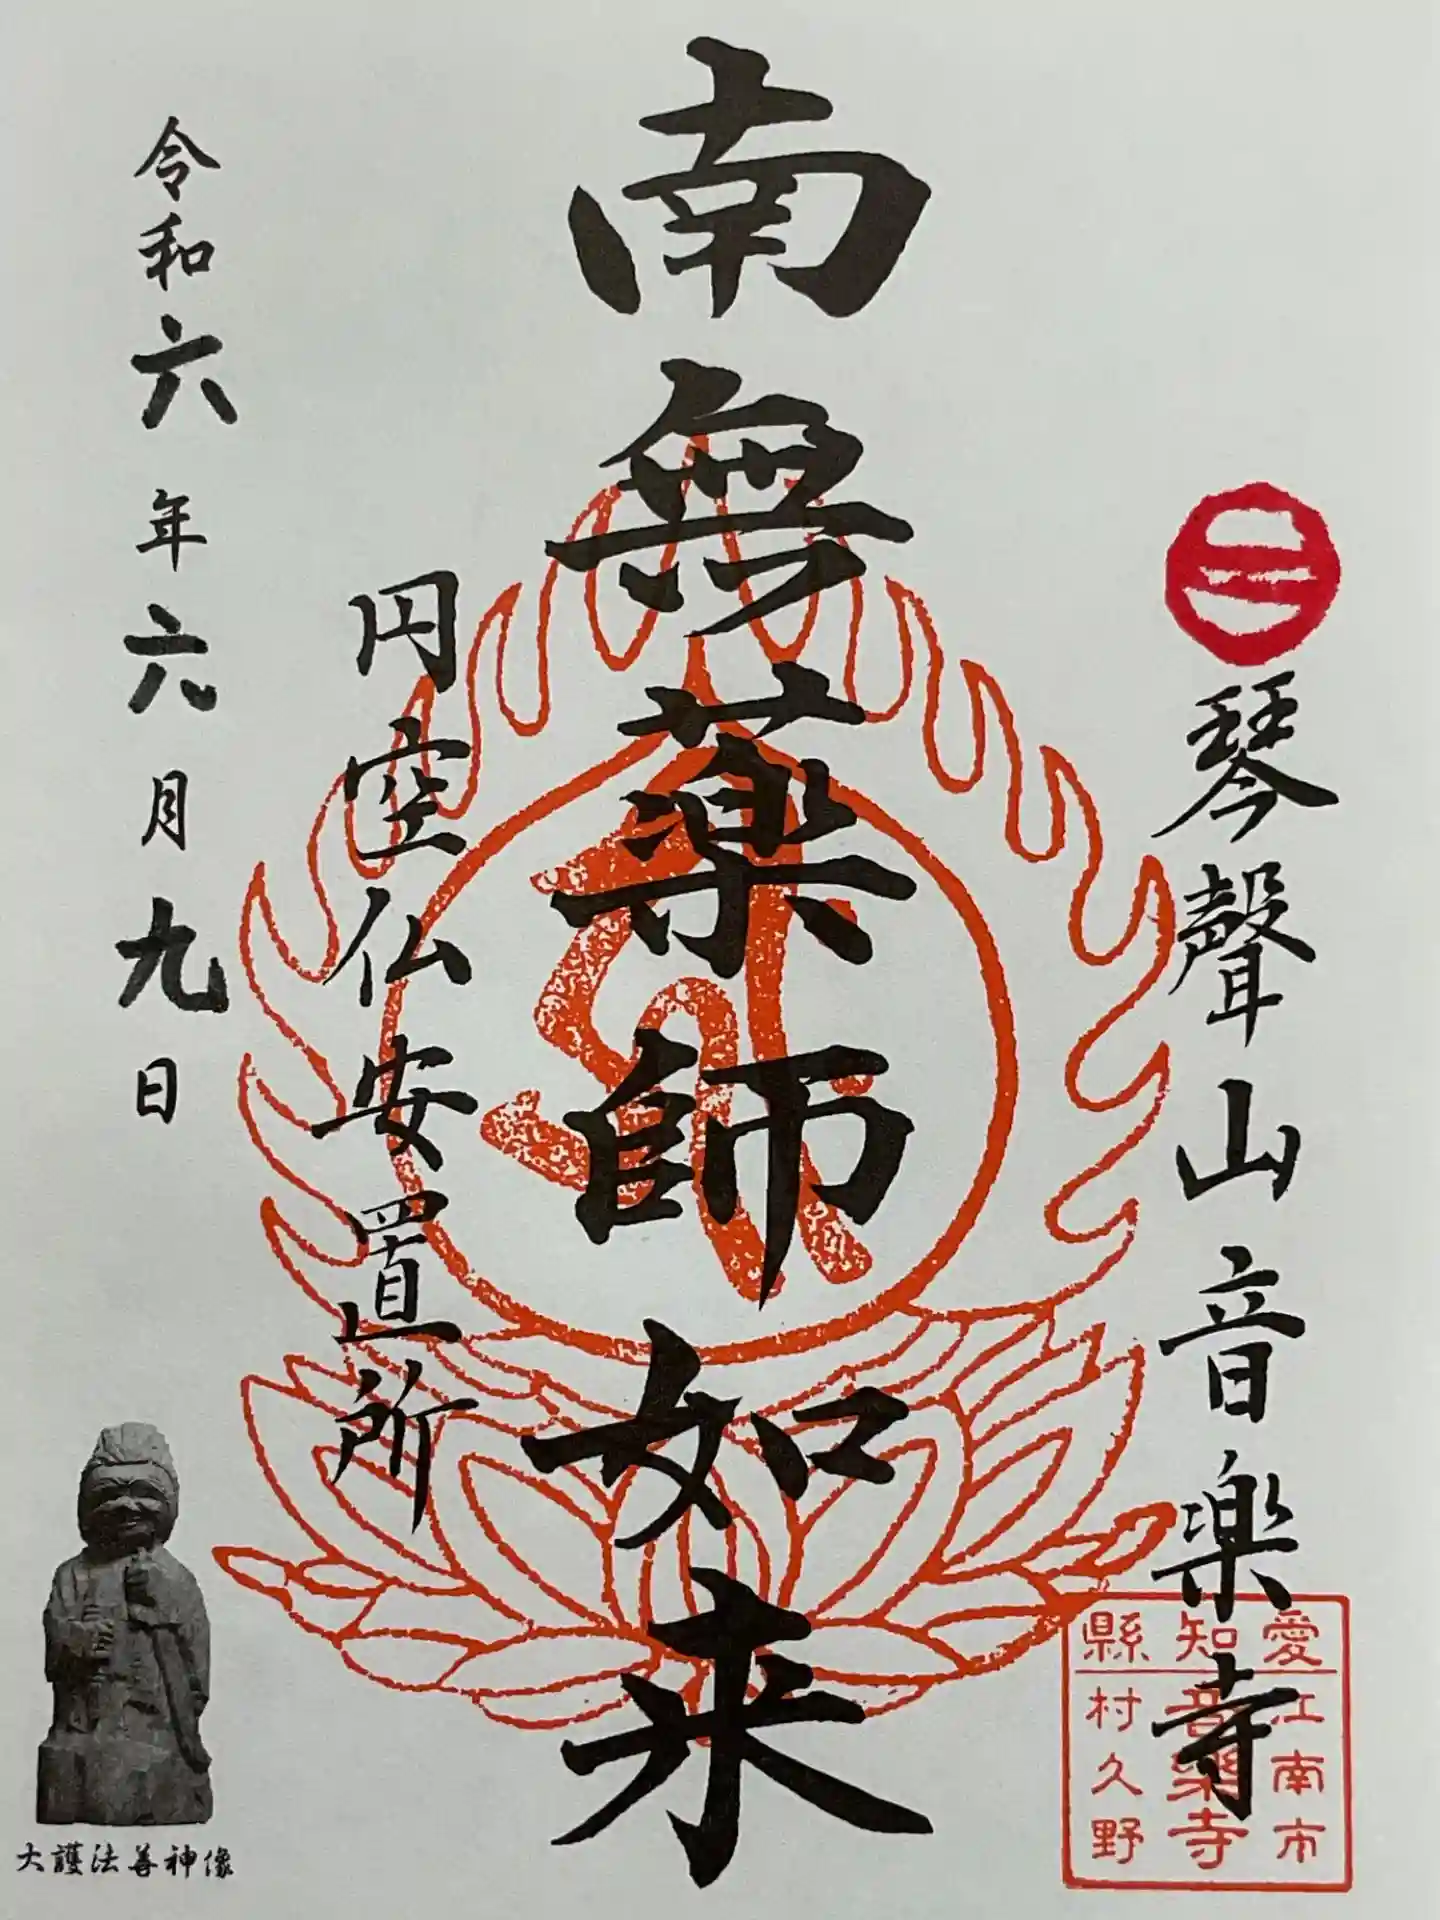 琴聲山音楽寺
愛知縣
江南市
音樂寺
村久野
南無薬師如来
円空仏安置所
令和六年六月九日
大護法善神像